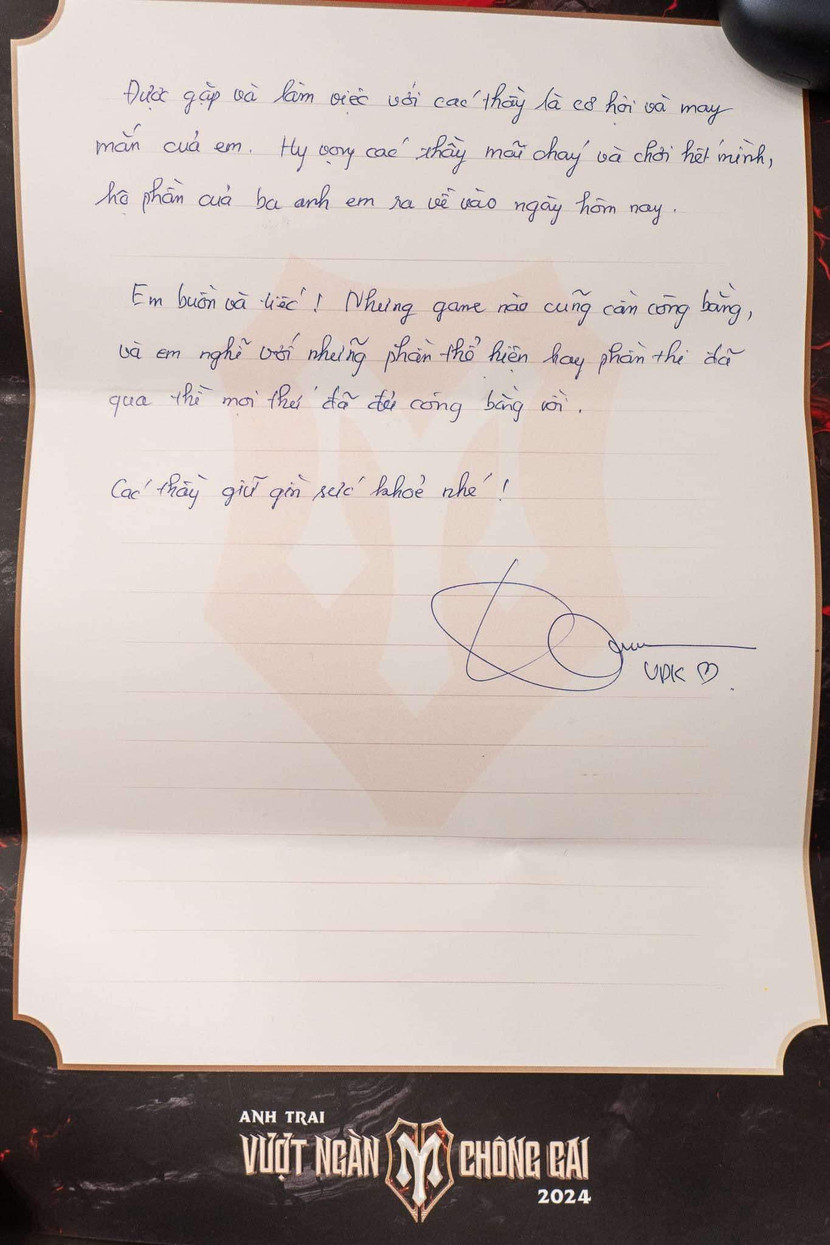 Được gặp và làm việc với các thầy là cơ hội và may
mắn của em. Hy vọng các thầy mãi cháy và chơi hết mình,
hộ phần của ba anh em ra về vào ngày hôm nay.
Em buồn và tiếc! Nhưng game nào cũng cần công bằng,
và em nghĩ với những phần thể hiện hay phần thi đã
qua thì mọi thứ đã đủ công bằng rồi.
Các thầy giữ gìn sức khoẻ nhé!
UPK
ANH TRAI
VƯỢT NGÀN CHÔNG GAI
2024